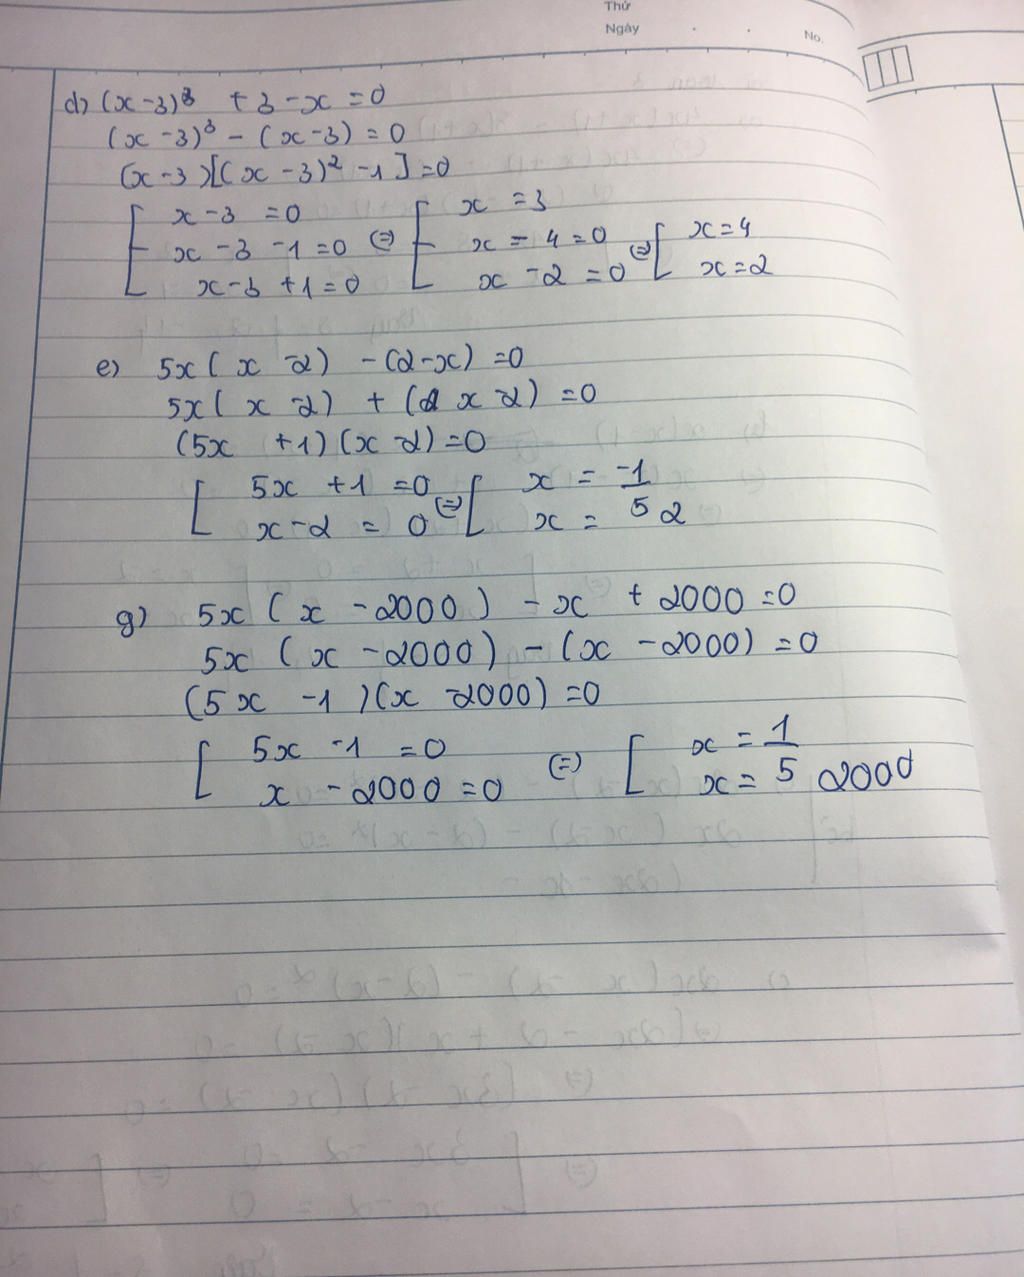 Thứ
Ngày . .
No.
d) (x-3)³ + 3 - x = 0
(x - 3)³ - (x - 3) = 0
(x - 3)[(x - 3)² - 1] = 0
[ x - 3 = 0
x - 3 - 1 = 0
x - 3 + 1 = 0
(=) [ x = 3
x - 4 = 0
x - 2 = 0
(=) [ x = 4
x = 2
e) 5x(x - 2) - (2 - x) = 0
5x(x - 2) + (x - 2) = 0
(5x + 1)(x - 2) = 0
[ 5x + 1 = 0
x - 2 = 0
(=) [ x = -1/5
x = 2
g) 5x (x - 2000) - x + 2000 = 0
5x (x - 2000) - (x - 2000) = 0
(5x - 1)(x - 2000) = 0
[ 5x - 1 = 0
x - 2000 = 0
(=) [ x = 1/5
x = 2000